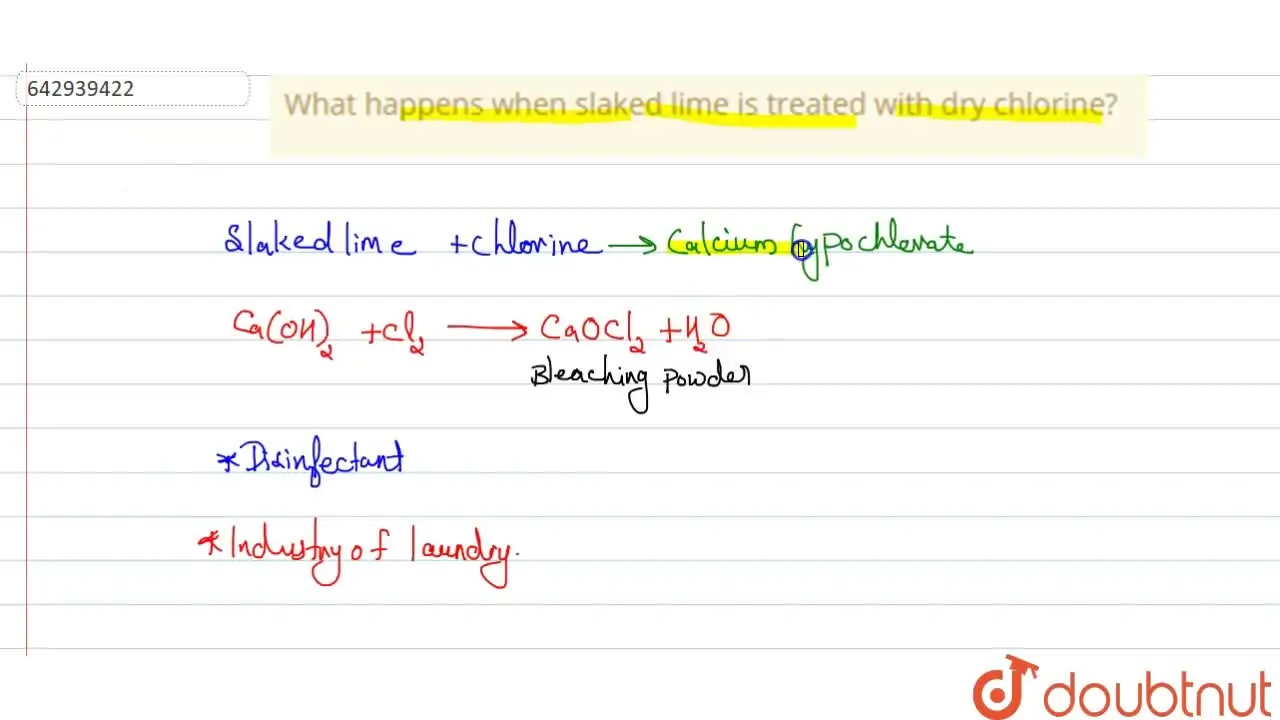 642939422
What happens when slaked lime is treated with dry chlorine?
Slaked lime + chlorine → Calcium hypochlorate
Ca(OH)₂ + Cl₂ → CaOCl₂ + H₂O
Bleaching powder
* Disinfectant
* Industry of laundry.
doubtnut